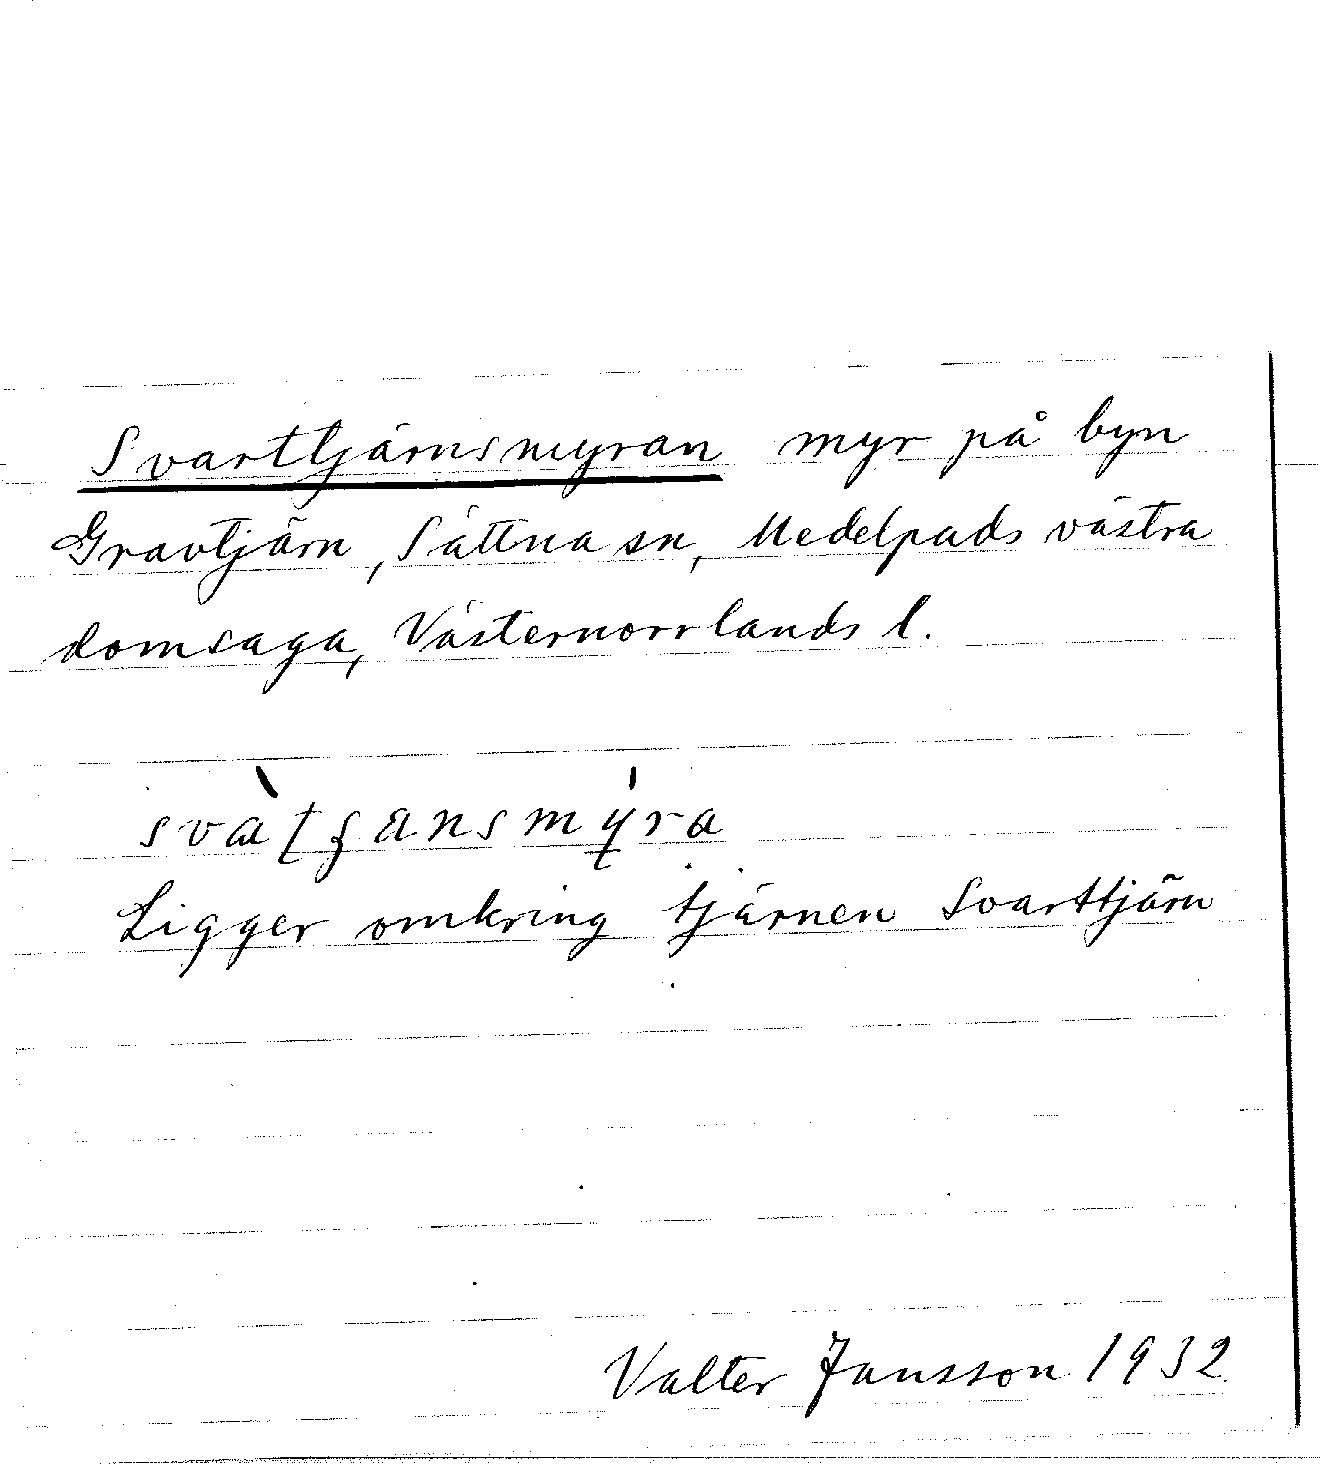 Svarttjärnsmyran myr på byn
Gravtjärn, Sättna sn, Medelpads västra
domsaga, Västernorrlands l.
Ligger omkring tjärnen Svarttjärn
Valter Jansson 1932